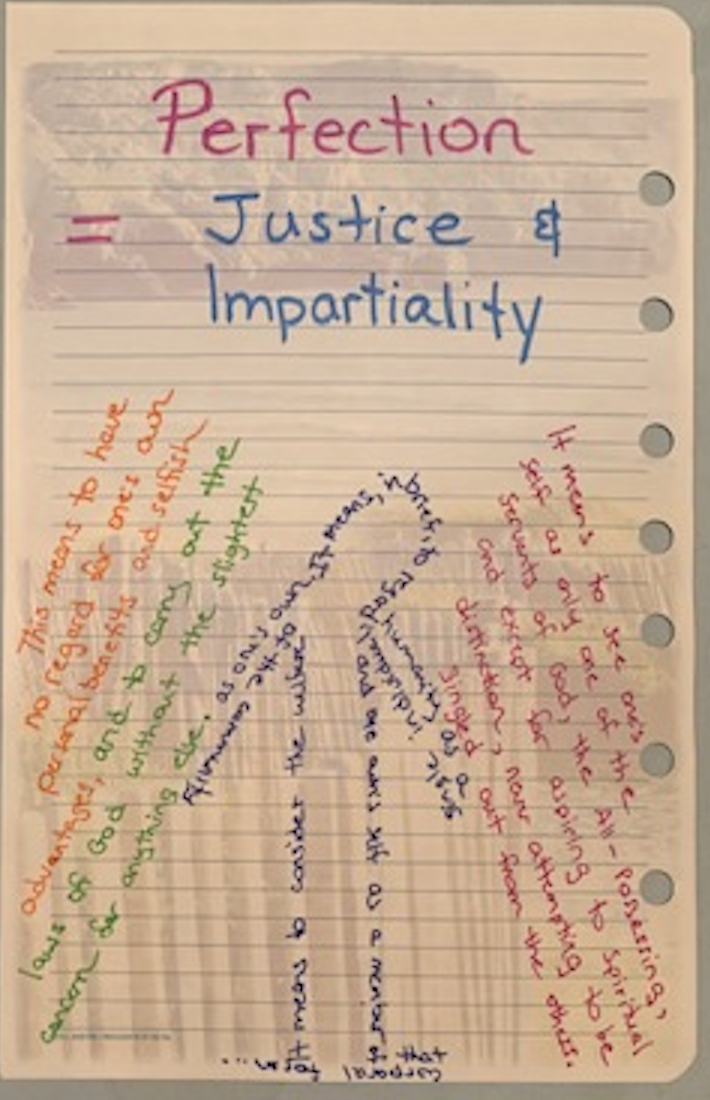 Perfection
= Justice &
Impartiality
This means to have
no regard for one's own
personal benefits and selfish
advantages, and to carry out the
laws of God without the slightest
concern for anything else.
It means to see one's
self as only one of the
servants of God, the All-Possessing,
and except for aspiring to spiritual
distinction, never attempting to be
singled out from the others.
It means to consider the
of the community
as one's own. It means, in brief, to
regard humanity
as a single
individual, and one's self as a member of
that
corporal
form....